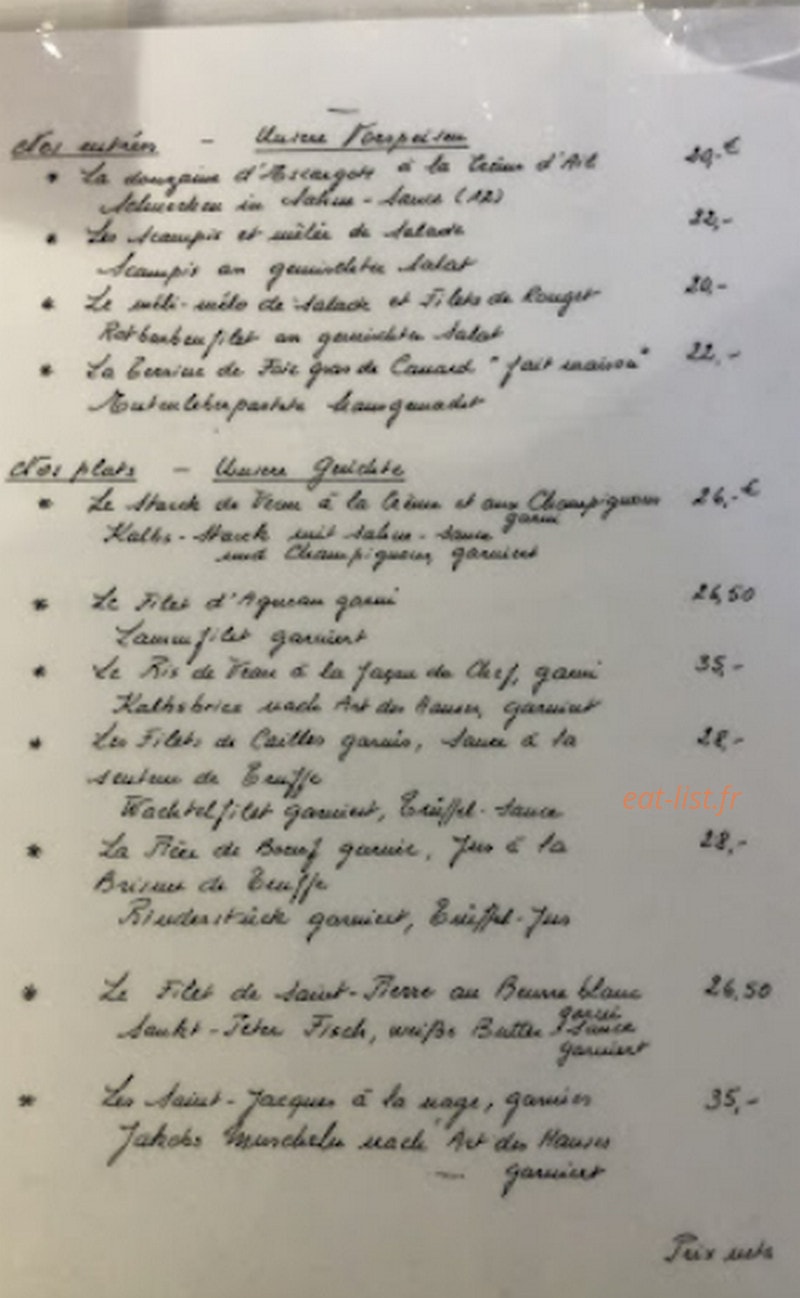 Nos entrées - Unsere Vorspeisen
* La douzaine d'Escargots à la Crème d'Ail 20,-€
Schnecken in Sahne-Sauce (12)
* Les Scampis et mêlée de Salade 22,-
Scampis an gemischter Salat
* Le méli-mélo de Salade et Filets de Rouget 20,-
Rotbarbenfilet an gemischter Salat
* La Terrine de Foie gras de Canard "fait maison" 22,-
Entenleberpastete hausgemacht
Nos plats - Unsere Gerichte
* Le Steack de Veau à la Crème et aux Champignons 26,-€
garni
Kalbs-Steack mit Sahne-Sauce
und Champignons, garniert
* Le Filet d'Agneau garni 26,50
Lammfilet garniert
* Le Ris de Veau à la façon du Chef, garni 35,-
Kalbsbries nach Art des Hauses, garniert
* Les Filets de Cailles garnis, Sauce à la 28,-
senteur de Truffe
Wachtelfilet garniert, Trüffel-Sauce
* La Pièce de Boeuf garnie, Jus à la 28,-
Brisure de Truffe
Rinderstück garniert, Trüffel-Jus
* Le Filet de Saint-Pierre au Beurre blanc 26,50
garni
Sankt-Peter Fisch, weiße Butter Sauce
garniert
* Les Saint-Jacques à la nage, garnies 35,-
Jakobs Muscheln nach Art des Hauses
garniert
Prix nets
eat-list.fr